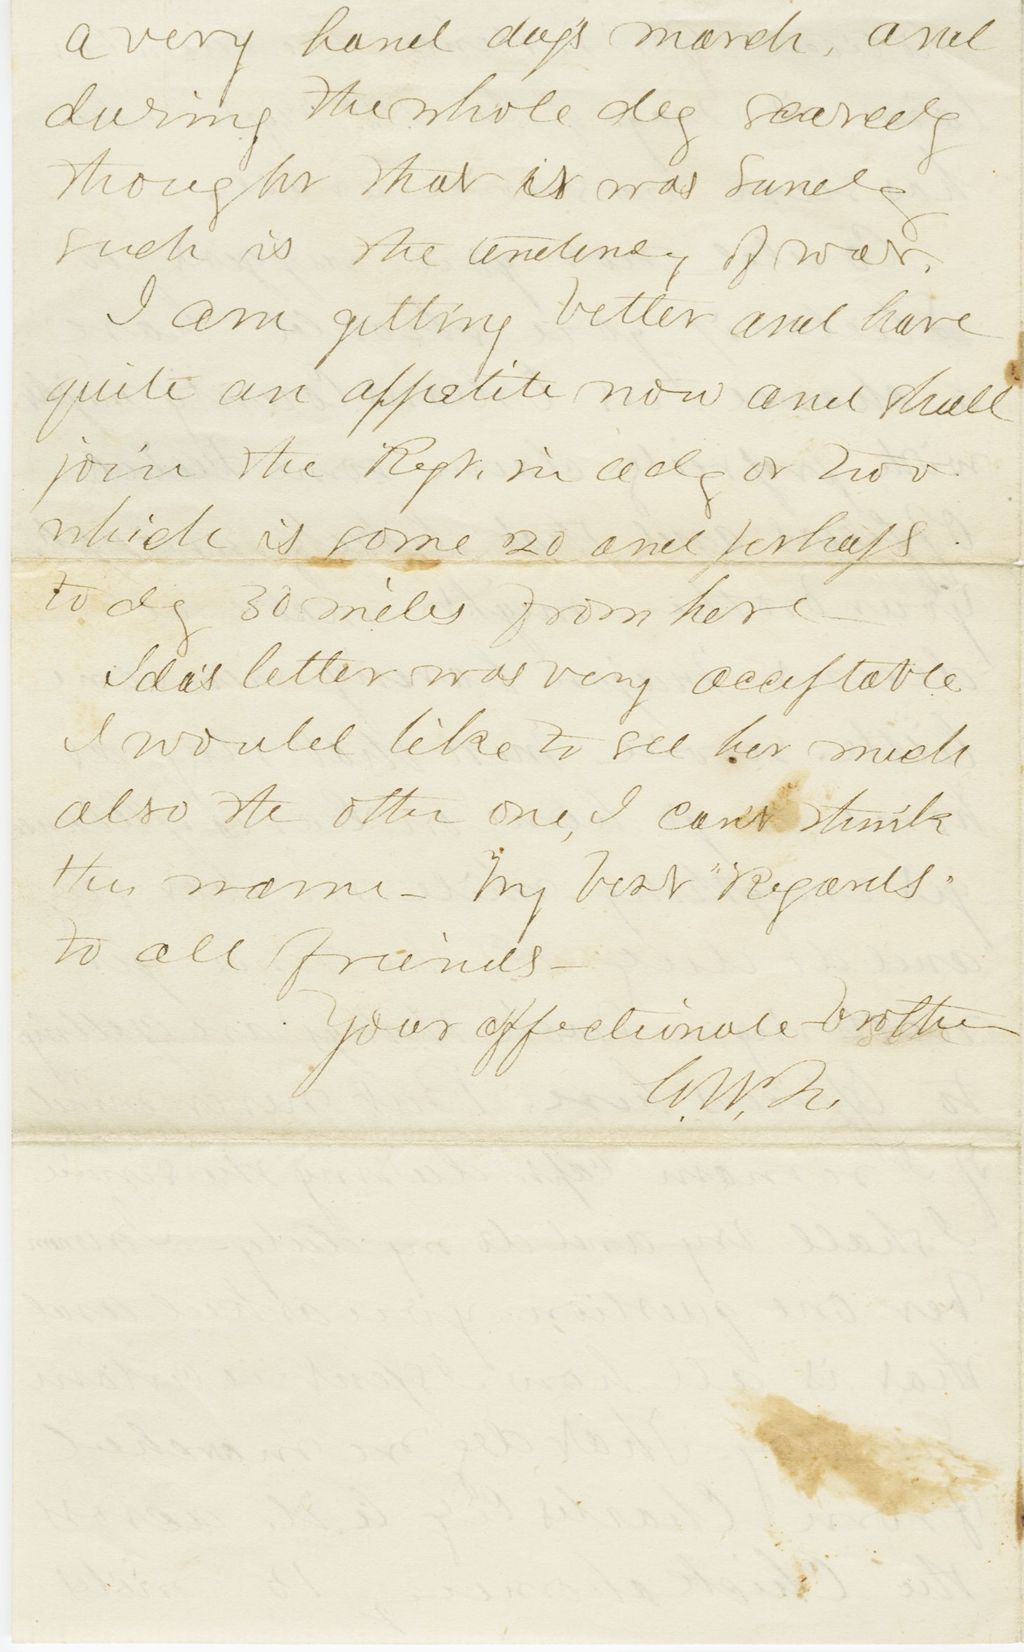 a very hard days march, and
during the whole day scarcely
thought that it was Sunday
such is the tendency of war.
I am getting better and have
quite an appetite now and shall
join the Regt. in a day or two
which is some 20 and perhaps
to day 30 miles from here
Ida's letter was very acceptable
I would like to see her much
also the other one, I can't think
the name - My best "Regards"
to all friends -
Your affectionate brother
G.W.N.